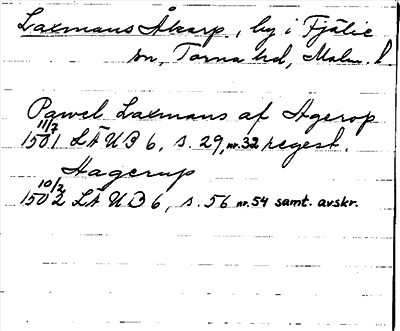 Laxmans Åkarp, by i Fjälie
sn, Torna hd, Malm. l
Pawel Laxmans af Agerop
11/7
1501 LÄUB 6, s. 29, nr. 32 regest.
Hagerup
10/2
1502 LÄUB 6, s. 56 nr. 54 samt. avskr.